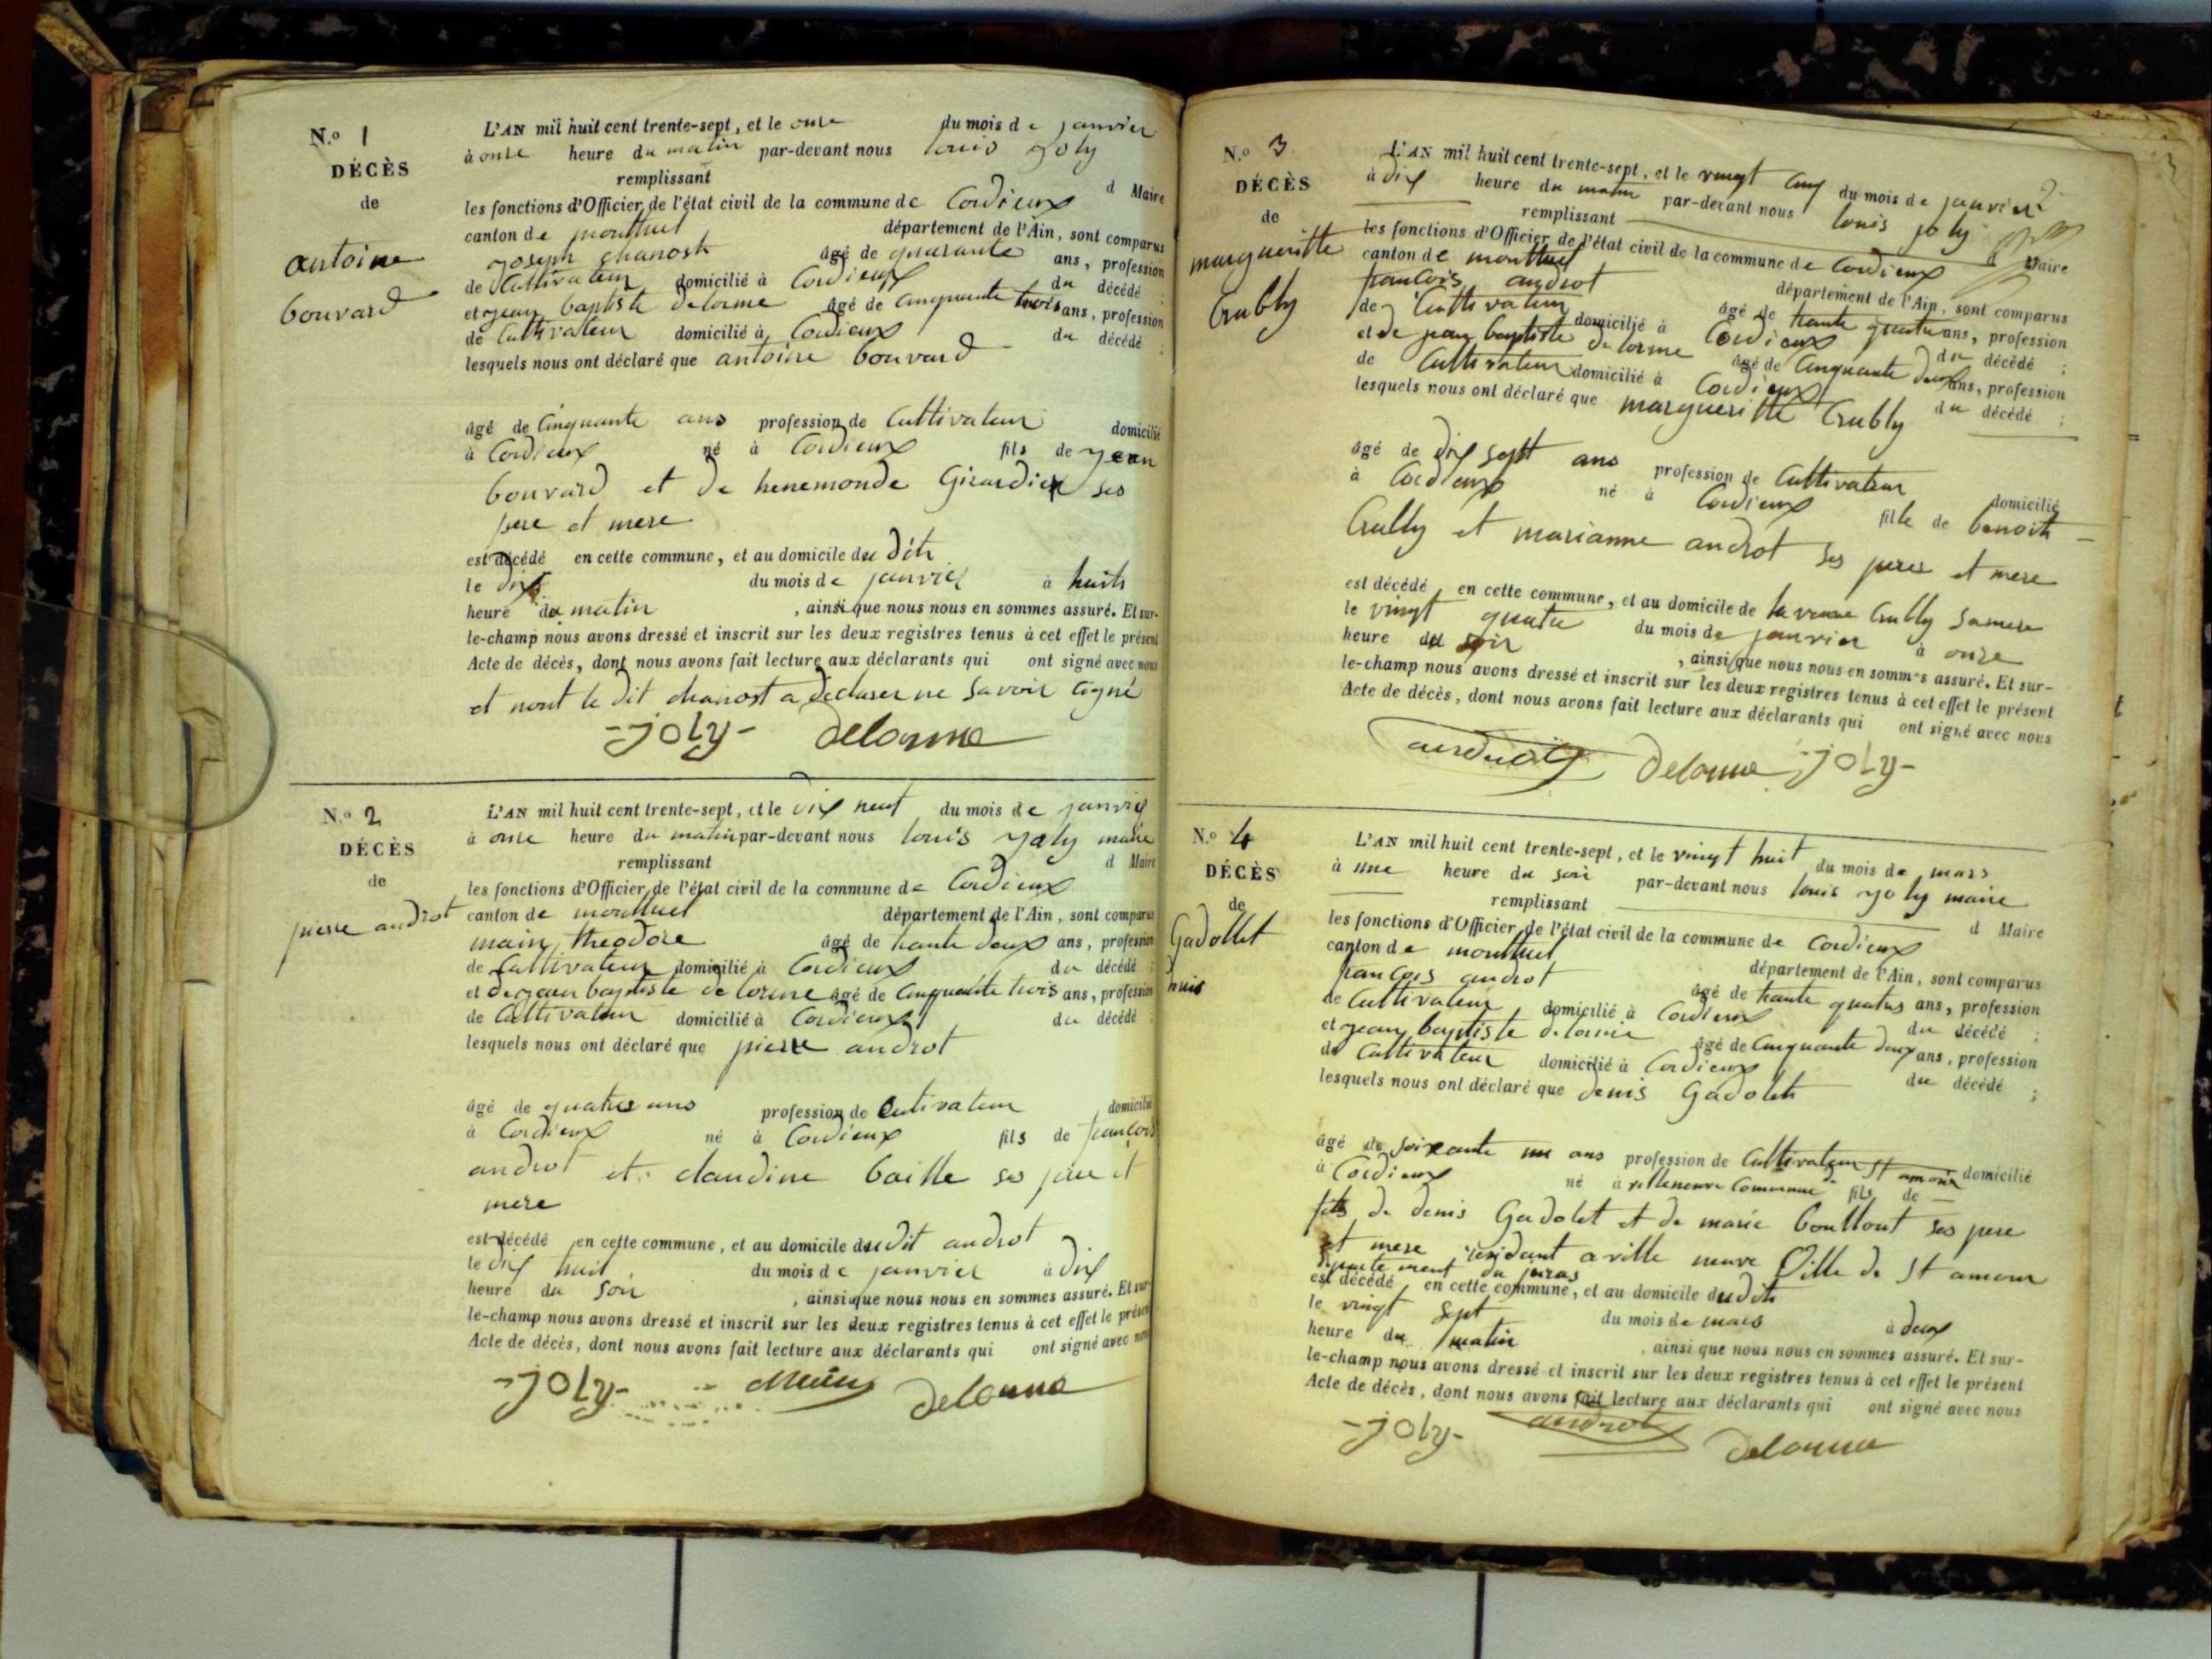 N.o 1
DÉCÈS
de
antoine
bouvard
L'AN mil huit cent trente-sept, et le onse du mois de janvier
à onse heure du matin par-devant nous louis joly
remplissant d Maire
les fonctions d'Officier de l'état civil de la commune de Cordieux
canton de montluel département de l'Ain, sont comparus
joseph chanost âgé de quarante ans, profession
de Cultivateur domicilié à Cordieux du décédé ;
et jean baptiste delorme âgé de cinquante trois ans, profession
de Cultivateur domicilié à Cordieux du décédé ;
lesquels nous ont déclaré que antoine bouvard
âgé de Cinquante ans profession de Cultivateur domicilié
à Cordieux né à Cordieux fils de jean
bouvard et de henemonde Girardier ses
pere et mere
est décédé en cette commune, et au domicile du dit
le dix du mois de janvier à huits
heure du matin , ainsi que nous nous en sommes assuré. Et sur-
le-champ nous avons dressé et inscrit sur les deux registres tenus à cet effet le présent
Acte de décès, dont nous avons fait lecture aux déclarants qui ont signé avec nous
et nont le dit chanost a declarer ne savoir signé
-joly- delorme
N.o 2
DÉCÈS
de
pierre androt
L'AN mil huit cent trente-sept, et le dix neuf du mois de janvier
à onse heure du matin par-devant nous louis joly maire
remplissant d Maire
les fonctions d'Officier de l'état civil de la commune de Cordieux
canton de montluel département de l'Ain, sont comparus
main theodore âgé de trante deux ans, profession
de Cultivateur domicilié à Cordieux du décédé ;
et de jean baptiste delorme âgé de Cinquante trois ans, profession
de Cultivateur domicilié à Cordieux du décédé ;
lesquels nous ont déclaré que pierre androt
âgé de quatres ans profession de Cutivateur domicilié
à Cordieux né à Cordieux fils de francois
androt et claudine baille ses pere et
mere
est décédé en cette commune, et au domicile dudit androt
le dix huit du mois de janvier à dix
heure du soir , ainsi que nous nous en sommes assuré. Et sur-
le-champ nous avons dressé et inscrit sur les deux registres tenus à cet effet le présent
Acte de décès, dont nous avons fait lecture aux déclarants qui ont signé avec nous
-joly- delorme
N.o 3
DÉCÈS
de
margueritte
Crubly
L'AN mil huit cent trente-sept, et le vingt cinq du mois de janvier 2
à dix heure du matin par-devant nous louis joly
remplissant d Maire
les fonctions d'Officier de l'état civil de la commune de Cordieux
canton de montluel département de l'Ain, sont comparus
francois androt âgé de trante quatre ans, profession
de Cultivateur domicilié à Cordieux du décédé ;
et de jean baptiste delorme âgé de Cinquante deux ans, profession
de Cultivateur domicilié à Cordieux du décédé ;
lesquels nous ont déclaré que margueritte Crubly
âgé de dix sept ans profession de Cultivateur domicilié
à Cordieux né à Cordieux fille de benoit
Crubly et marianne androt ses peres et mere
est décédé en cette commune, et au domicile de la veuve Crubly samere
le vingt quatre du mois de janvier à onze
heure du soir , ainsi que nous nous en sommes assuré. Et sur-
le-champ nous avons dressé et inscrit sur les deux registres tenus à cet effet le présent
Acte de décès, dont nous avons fait lecture aux déclarants qui ont signé avec nous
androt delorme -joly-
N.o 4
DÉCÈS
de
Gadollet
L'AN mil huit cent trente-sept, et le vingt huit du mois de mars
à une heure du soir par-devant nous louis joly maire
remplissant d Maire
les fonctions d'Officier de l'état civil de la commune de Cordieux
canton de montluel département de l'Ain, sont comparus
francois androt âgé de trante quatres ans, profession
de Cultivateur domicilié à Cordieux du décédé ;
et jean baptiste delorme âgé de Cinquante deux ans, profession
de Cultivateur domicilié à Cordieux du décédé ;
lesquels nous ont déclaré que denis Gadolet
âgé de soixante un ans profession de Cultivateur domicilié
à Cordieux né à villeneuve Commune St amour fils de
fils de denis Gadolet et de marie boullout ses pere
et mere residant a ville neuve Ville de St amour
departement du juras
est décédé en cette commune, et au domicile dudit
le vingt sept du mois de mars à deux
heure du matin , ainsi que nous nous en sommes assuré. Et sur-
le-champ nous avons dressé et inscrit sur les deux registres tenus à cet effet le présent
Acte de décès, dont nous avons fait lecture aux déclarants qui ont signé avec nous
-joly- androt delorme